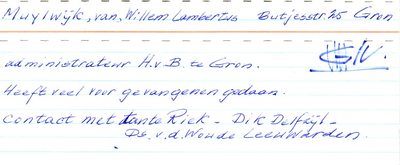 Muylwijk, van, Willem Lambertus Butjesstr. 25 Gron
administrateur H.v.B. te Gron.
Heeft veel voor gevangenen gedaan.
Contact met tante Riek - Dik Delfzijl -
Ds. v.d. Woude Leeuwarden.